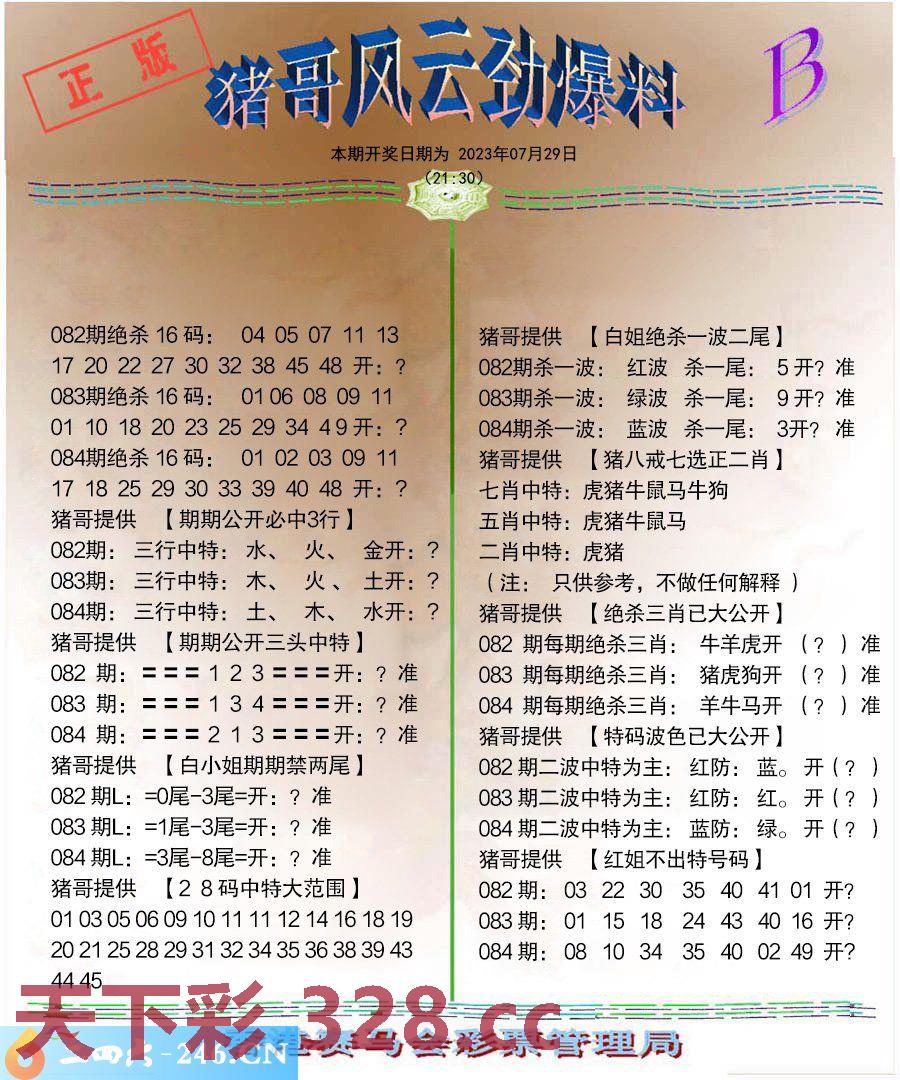 正版
猪哥风云劲爆料
B
本期开奖日期为 2023年07月29日
(21:30)
082期绝杀16码： 04 05 07 11 13
17 20 22 27 30 32 38 45 48 开：?
083期绝杀16码： 01 06 08 09 11
01 10 18 20 23 25 29 34 49开：?
084期绝杀16码： 01 02 03 09 11
17 18 25 29 30 33 39 40 48 开：?
猪哥提供 【期期公开必中3行】
082期： 三行中特： 水、 火、 金开：?
083期： 三行中特： 木、 火、 土开：?
084期： 三行中特： 土、 木、 水开：?
猪哥提供 【期期公开三头中特】
082 期：〓〓〓１２３〓〓〓开：？准
083 期：〓〓〓１３４〓〓〓开：？准
084 期：〓〓〓２１３〓〓〓开：？准
猪哥提供 【白小姐期期禁两尾】
082期L：=0尾-3尾=开：？准
083期L：=1尾-3尾=开：？准
084期L：=3尾-8尾=开：？准
猪哥提供 【２８码中特大范围】
01 03 05 06 09 10 11 11 12 14 16 18 19
20 21 25 28 29 31 32 34 35 36 38 39 43
44 45
猪哥提供 【白姐绝杀一波二尾】
082期杀一波： 红波 杀一尾： 5开？准
083期杀一波： 绿波 杀一尾： 9开？准
084期杀一波： 蓝波 杀一尾： 3开？准
猪哥提供 【猪八戒七选正二肖】
七肖中特：虎猪牛鼠马牛狗
五肖中特：虎猪牛鼠马
二肖中特：虎猪
（注： 只供参考，不做任何解释）
猪哥提供 【绝杀三肖已大公开】
082 期每期绝杀三肖： 牛羊虎开 （？）准
083 期每期绝杀三肖： 猪虎狗开 （？）准
084 期每期绝杀三肖： 羊牛马开 （？）准
猪哥提供 【特码波色已大公开】
082期二波中特为主：红防：蓝。开（？）
083期二波中特为主：红防：红。开（？）
084期二波中特为主：蓝防：绿。开（？）
猪哥提供 【红姐不出特号码】
082期： 03 22 30 35 40 41 01 开?
083期： 01 15 18 24 43 40 16 开?
084期： 08 10 34 35 40 02 49 开?
天下彩 328.cc
-246.CN
赛马会彩票管理局